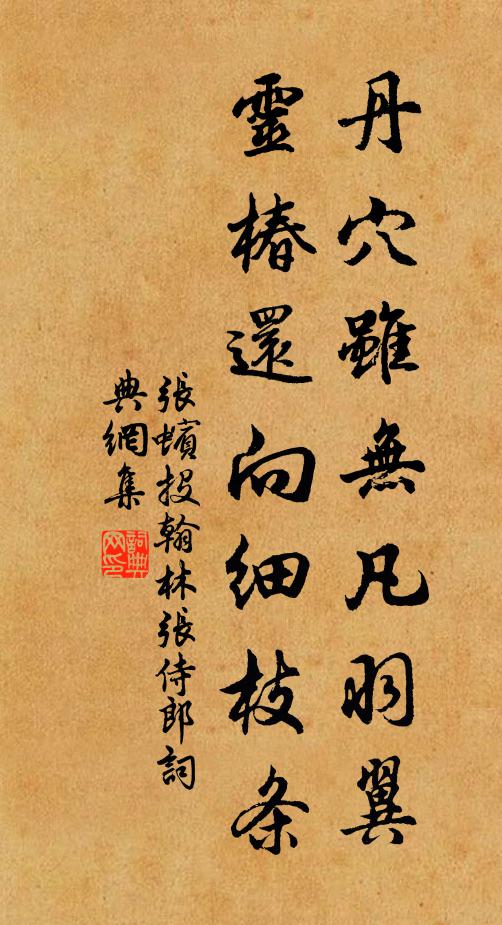 丹穴雖無凡羽翼
靈椿還向細枝条
張蠙投翰林張侍郎詞
典網集
詞典
网印